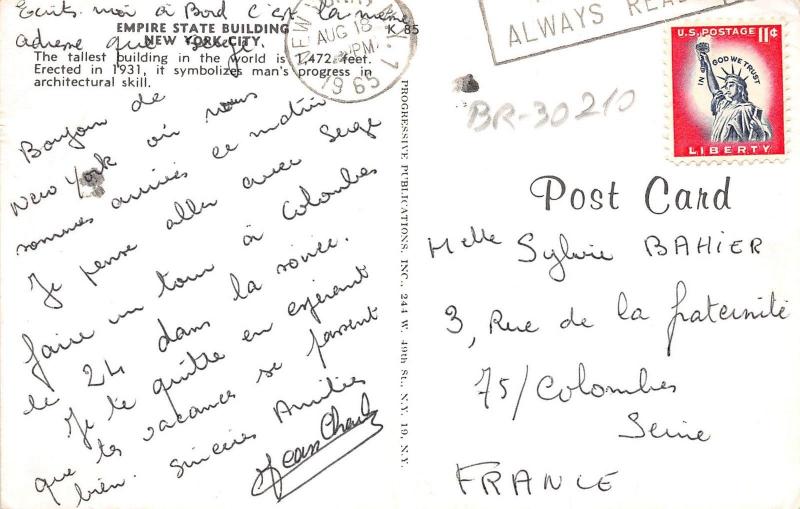 Ecris-moi à Bord c'est la même
adresse que
EMPIRE STATE BUILDING
NEW YORK CITY.
K 85
The tallest building in the world is 1,472 feet.
Erected in 1931, it symbolizes man's progress in
architectural skill.
Bonjour de
New York où nous
sommes arrivés ce matin
Je pense aller avec Serge
faire un tour à Colombes
le 24 dans la soirée.
Je te quitte en espérant
que tes vacances se passent
bien. Sincères Amitiés
Jean Charles
PROGRESSIVE PUBLICATIONS, INC., 244 W. 49th St., N.Y. 19, N.Y.
NEW
AUG 18
PM
1965
ALWAYS
U.S. POSTAGE 11¢
IN GOD WE TRUST
LIBERTY
BR-30210
Post Card
Melle Sylvie BAHIER
3, Rue de la fraternité
75/Colombes
Seine
FRANCE